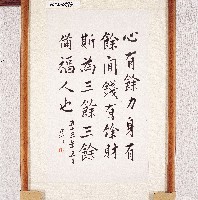 心有餘力身有
餘閒錢有餘財
斯為三餘三餘
備福人也